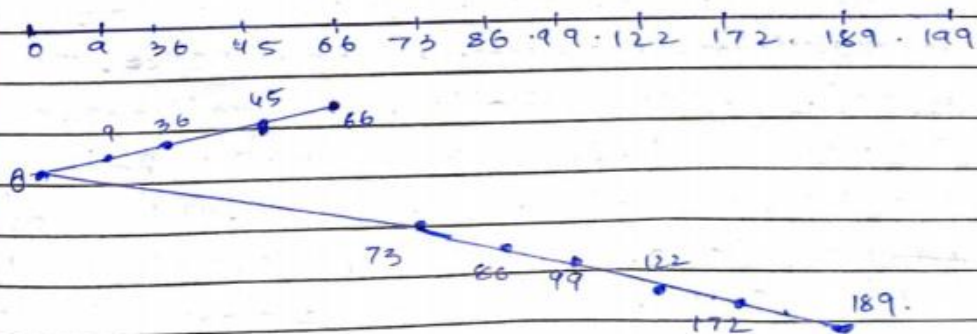 0 9 36 45 66 73 86 .99. 122 172. 189. 199
45
9 36 66
0
73 86 99 122 189.
172